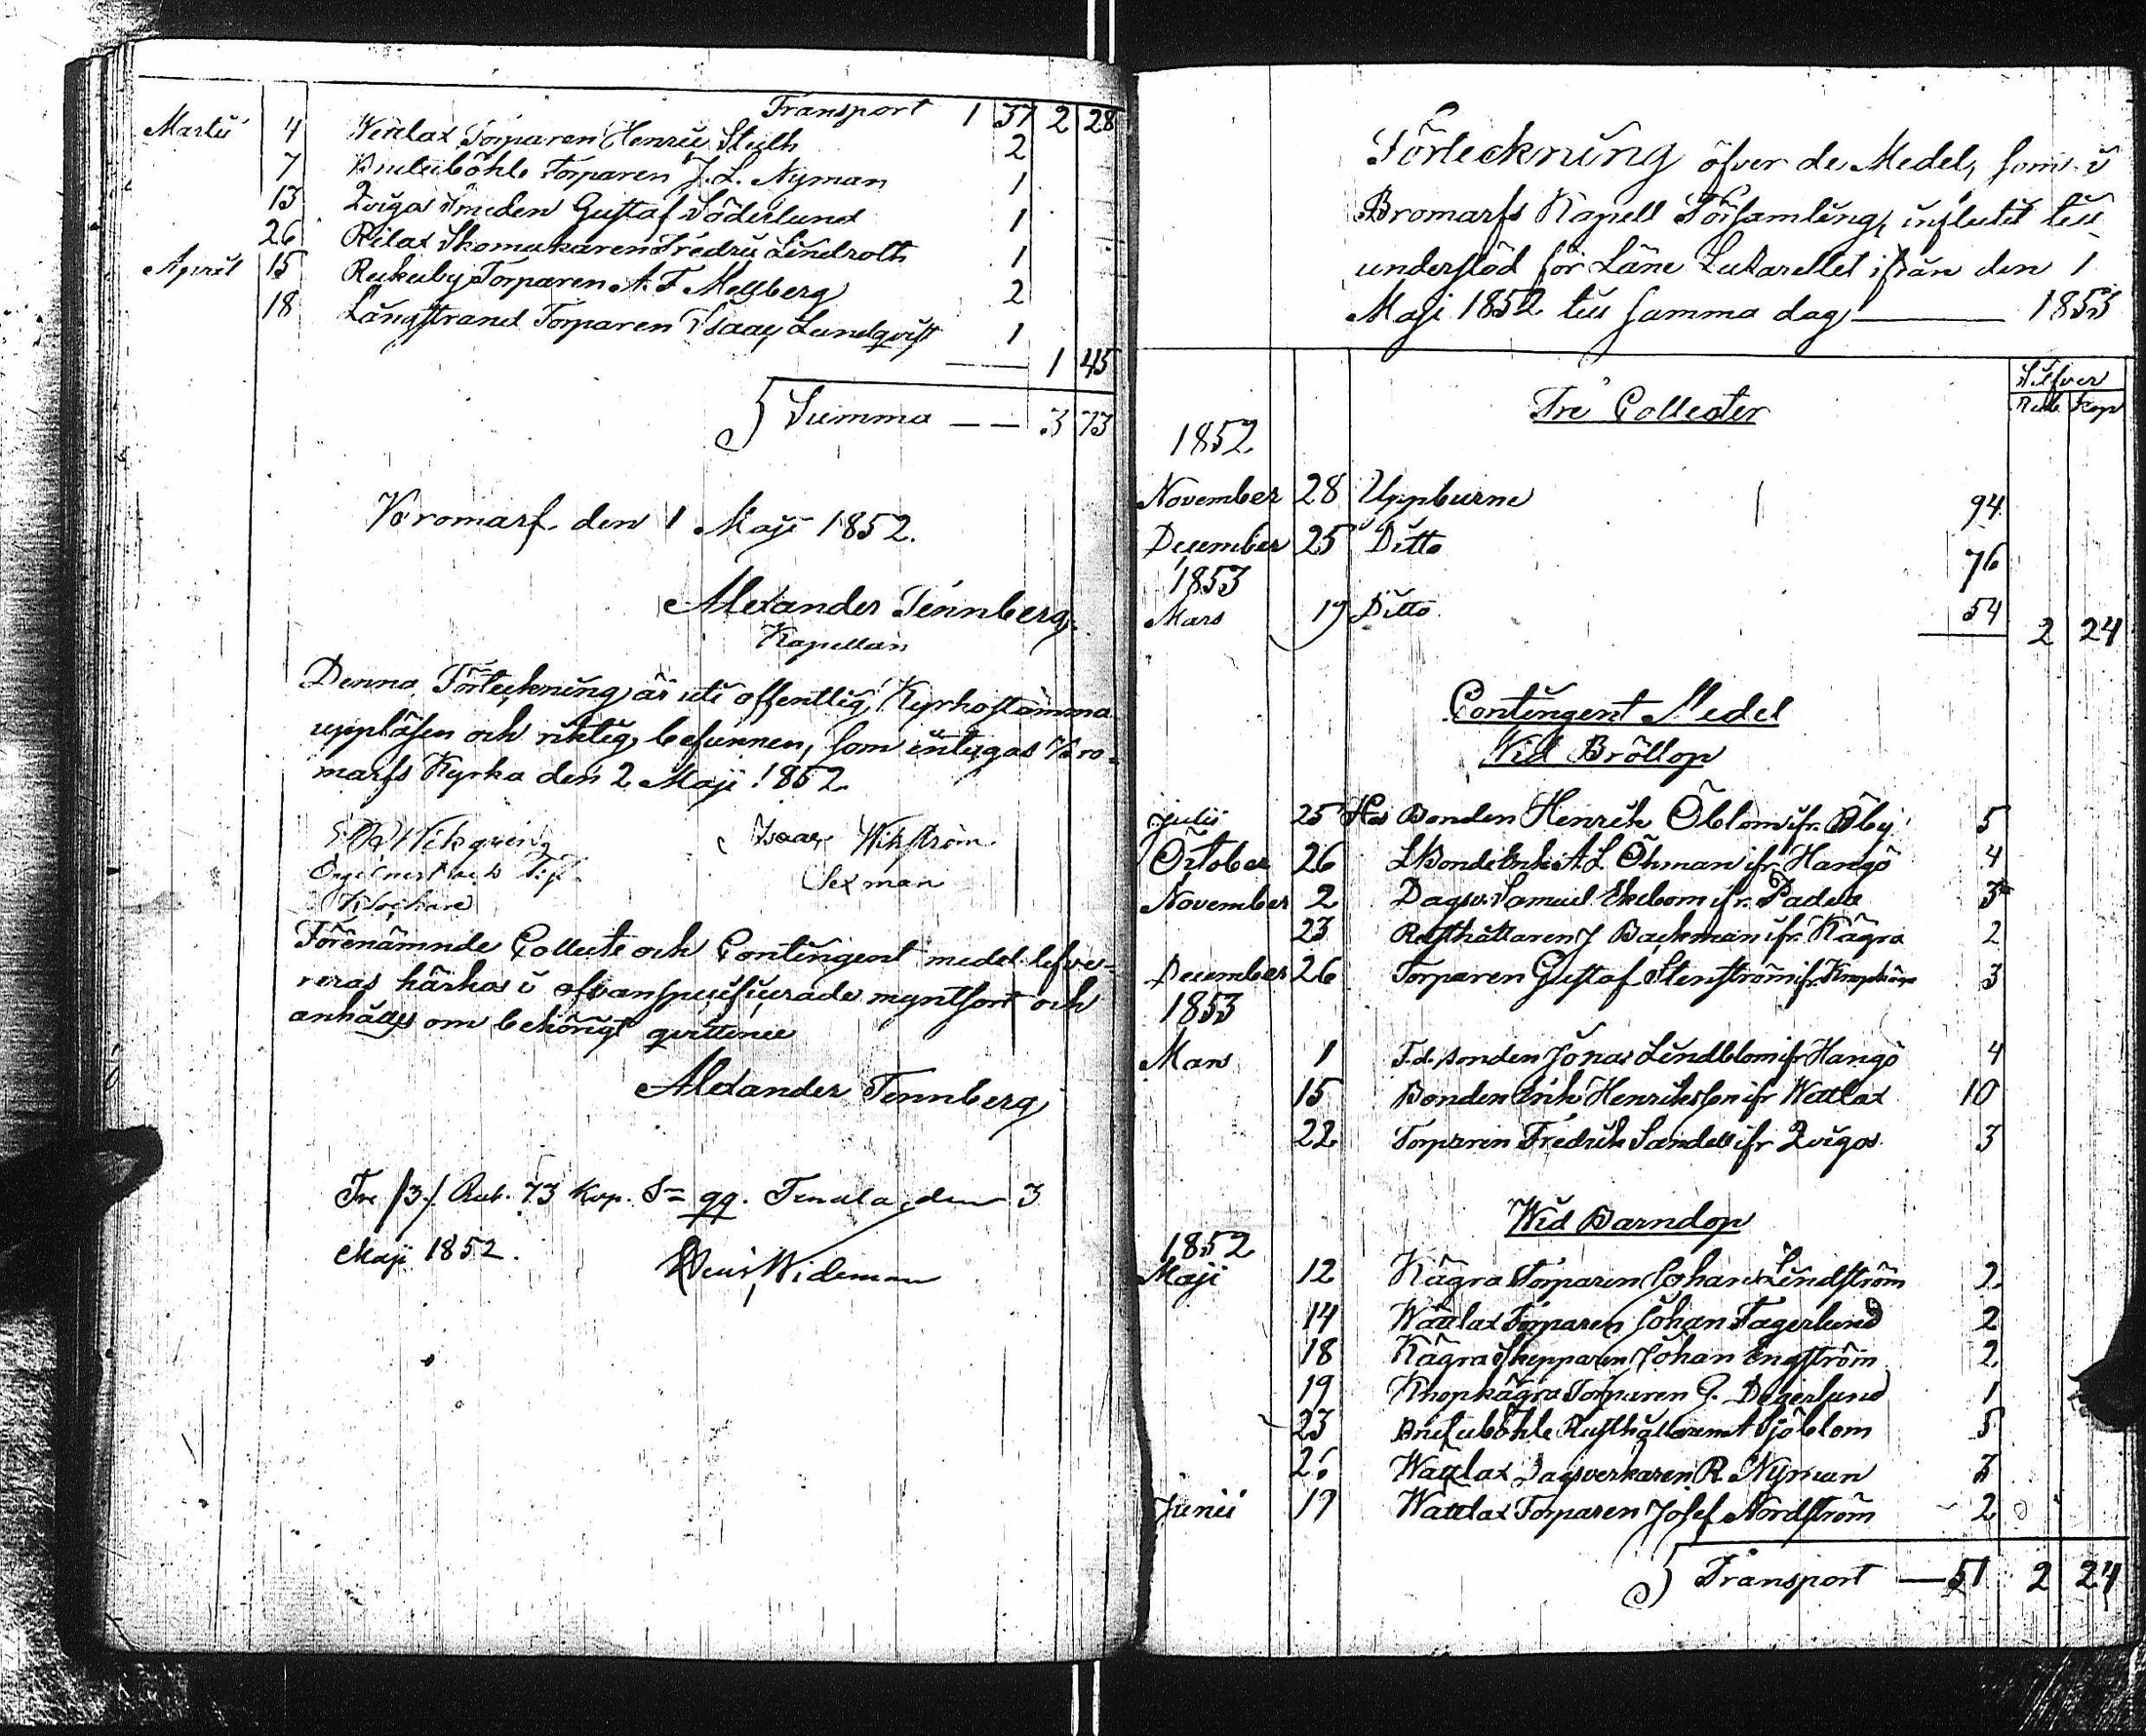 Transport 1 37 2 28
Martii 4 Wättlax Torparen Henric Stülth 2
7 Brukuböhle Torparen J. L. Nyman 1
13 Qvigos Smeden Gustaf Söderlund 1
26 Rilax Skomakaren Fredric Lindroth 1
April 15 Rekuby Torparen A. F. Mellberg 2
18 Långstrand Torparen Isaac Lundqvist 1
1 45
Summa — — 3 73
Bromarf den 1 Maji 1852.
Alexander Tennberg
Kapellan
Denna Förteckning är uti offentlig Kyrkostämma
uppläsen och riktig befunnen, som intygas Bro-
marfs Kyrka den 2 Maji 1852
Isaac Wikström
Sexman
Klockare
Förenämnde Collecte och Contingent medel lefve-
reras härhos i ofvanspecificerade myntsort och
anhålles om behörigt qvittence
Alexander Tennberg
Tre /3./ Rub. 73 Kop. Sr qq. Tenala den 3
Maji 1852. Wideman
Förteckning öfver de Medel, som i
Bromarfs Kapell Församling, influtit till
understöd för Läne Lazarettet ifrån den 1
Maji 1852 till samma dag — 1853
Silfver
Rub Kop
Tre Collecter
1852
November 28 Uppburne 94
December 25 Ditto 76
1853
Mars 19 Ditto 54 2 24
Contingent Medel
Wid Bröllop
Julii 25 Hos Bonden Henrik Öblom ifr. Öby 5
October 26 A L Öhman ifr Hangö 4
November 2 Dagsv. Samuel Ekebom ifr. Padva 3
23 Rusthållaren J Backman ifr. Kägra 2
December 26 Torparen Gustaf Stenström ifr. Knopkägra 3
1853
Mars 1 F.d. bonden Jonas Lindblom ifr Hangö 4
15 Bonden Erik Henriksson ifr Wättlax 10
22 Torparen Fredrik Sandell ifr Qvigos 3
Wid Barndop
1852
Maji 12 Kägra Torparen Johan Lindström 2
14 Wättlax Torparen Johan Fagerlund 2
18 Kägra Skepparen Johan Engström 2
19 Knopkägra Torparen G. Degerlund 1
23 Brukuböhle Rusthållaren A Sjöblom 5
26 Wättlax Dagsverkaren R. Nyman 3
Junii 17 Wättlax Torparen Josef Nordström 2
Transport — 51 2 24